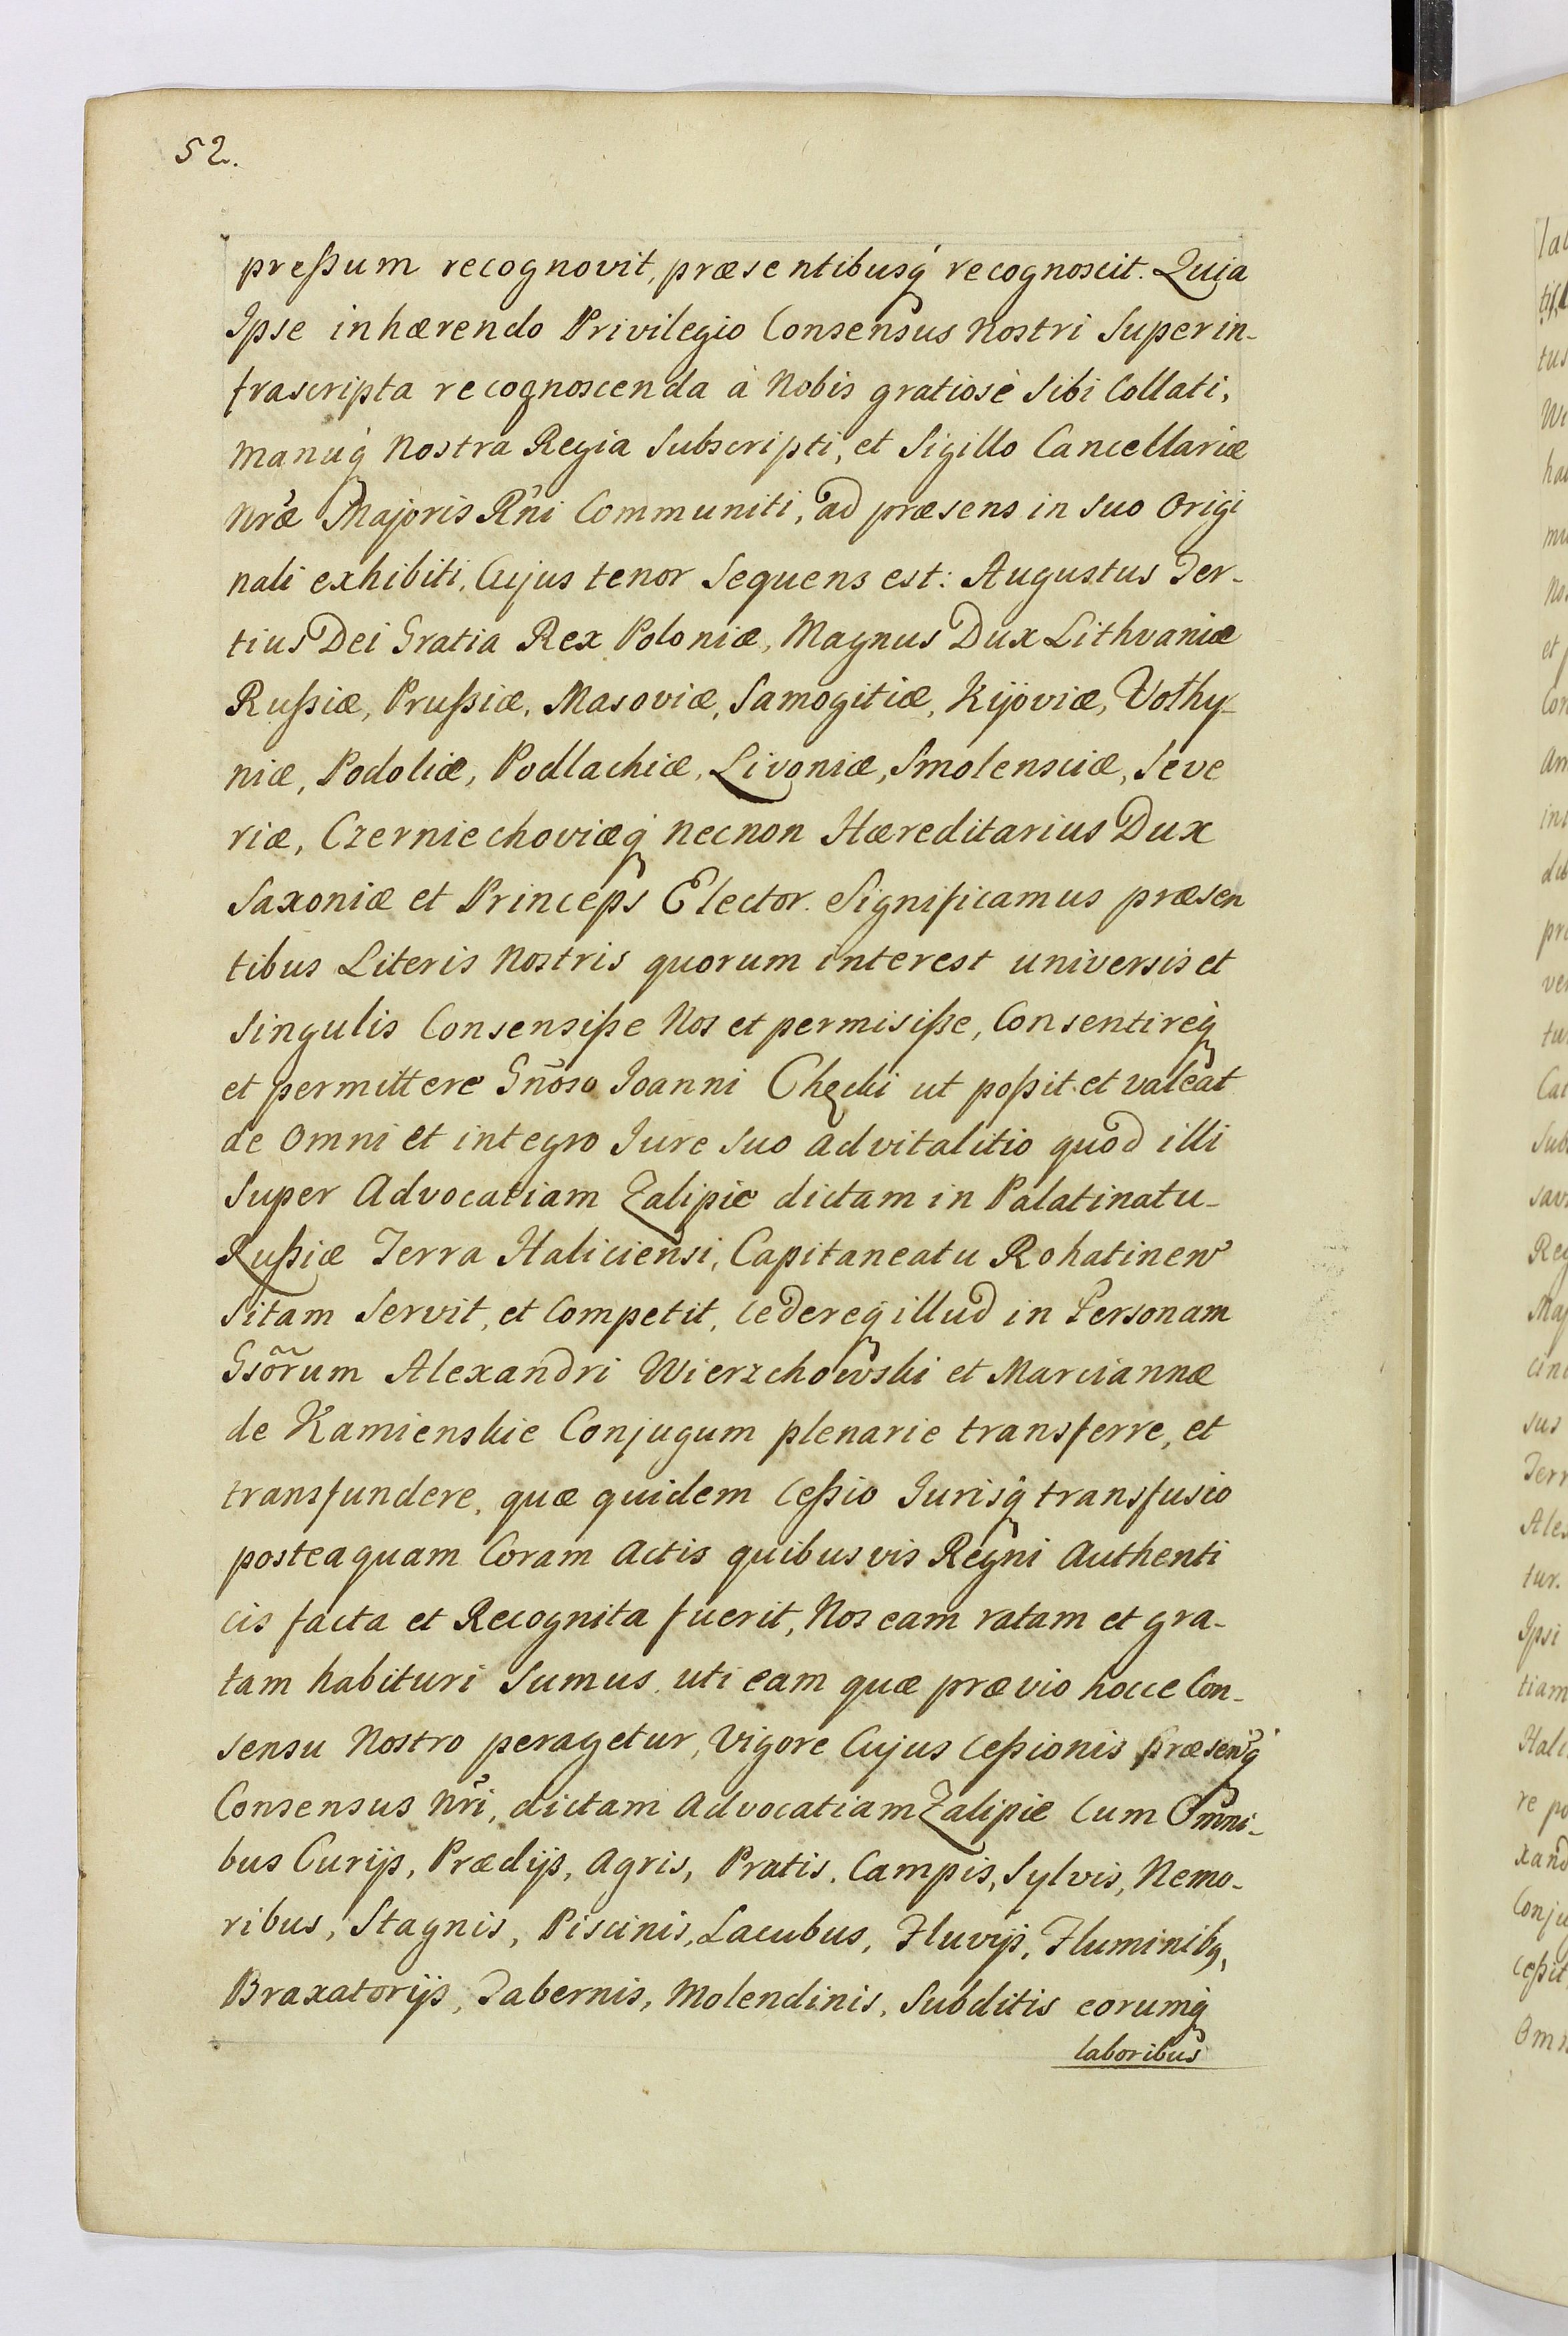 52.
preßum recognovit, præsentibusq́ recognoscit. Quia
Ipse inhærendo Privilegio Consensus Nostri Superin-
frascripta recognoscenda à Nobis gratiosè Sibi Collati,
manuq́ Nostra Regia Subscripti, et Sigillo Cancellariæ
Nr̃æ Majoris Rñi Communiti, ad præsens in Suo Origi
nali exhibiti, Cujus tenor Sequens est: Augustus Ter-
tius Dei Gratia Rex Poloniæ, Magnus Dux Lithvaniæ
Rußiæ, Prußiæ, Masoviæ, Samogitiæ, Kijoviæ, Volhy-
niæ, Podoliæ, Podlachiæ, Livoniæ, Smolensciæ, Seve
riæ, Czerniechoviæq́ necnon Hæreditarius Dux
Saxoniæ et Princeps Elector. Significamus præsen
tibus Literis Nostris quorum interest universis et
Singulis Consensiße Nos et permisiße, Consentireq́
et permittere Gñoso Joanni Chęcki ut poßit et valeat
de Omni et integro Jure Suo advitalitio quod illi
Super Advocatiam Zalipie dictam in Palatinatu-
Rußiæ Terra Haliciensi, Capitaneatu Rohatinen̛
Sitam Servit, et Competit, cedereq́ illud in Personam
Gsõrum Alexandri Wierzchowski et Marciannæ
de Kamienskie Conjugum plenarie transferre, et
transfundere, quæ quidem Ceßio Jurisq́ transfusio
posteaquam Coram Actis quibusvis Regni Authenti
cis facta et Recognita fuerit, Nos eam ratam et gra-
tam habituri Sumus, uti eam quæ prævio hocce Con-
sensu Nostro peragetur, Vigore Cujus Ceßionis præsen̛q́
Consensus Nr̃i, dictam Advocatiam Zalipie Cum Omni-
bus Curijs, Prædijs, Agris, Pratis, Campis, Sylvis, Nemo-
ribus, Stagnis, Piscinis, Lacubus, Fluvijs, Fluminibq,
Braxatorijs, Tabernis, Molendinis, Subditis eorumq́
laboribus